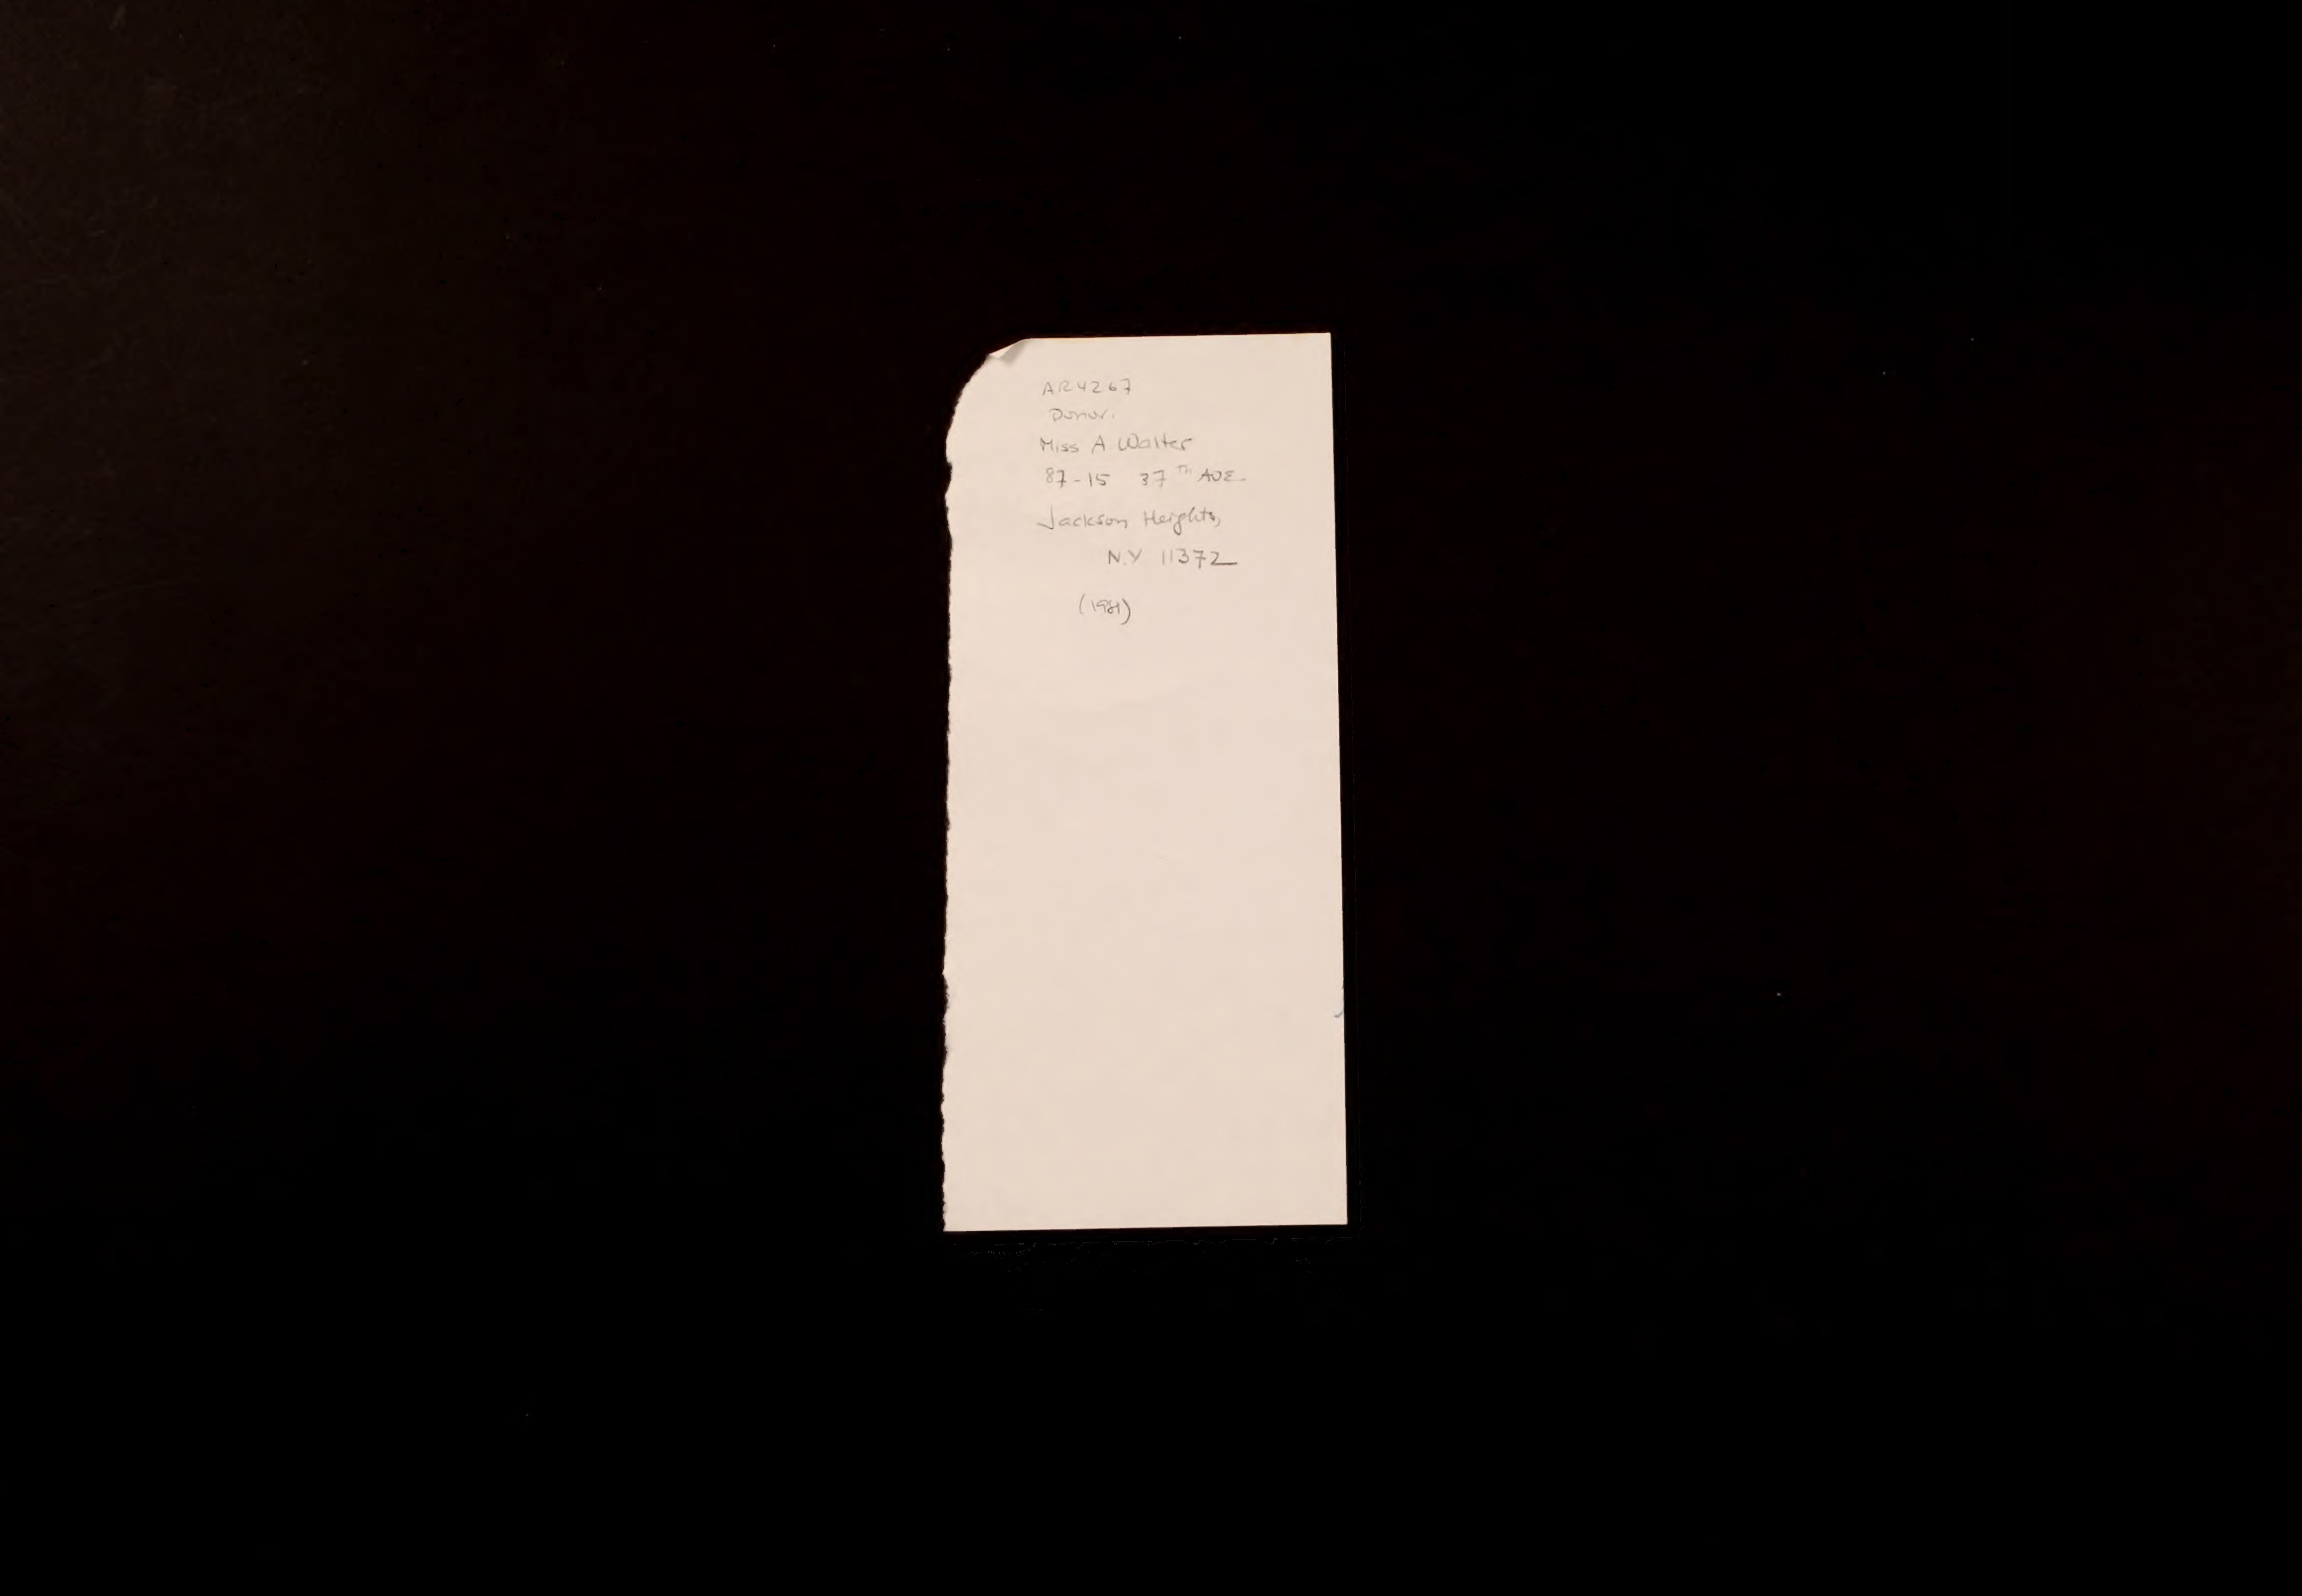 AR4267
Donor.
Miss A. Walter
87-15 37TH AVE.
Jackson Heights,
N.Y 11372
(1981)